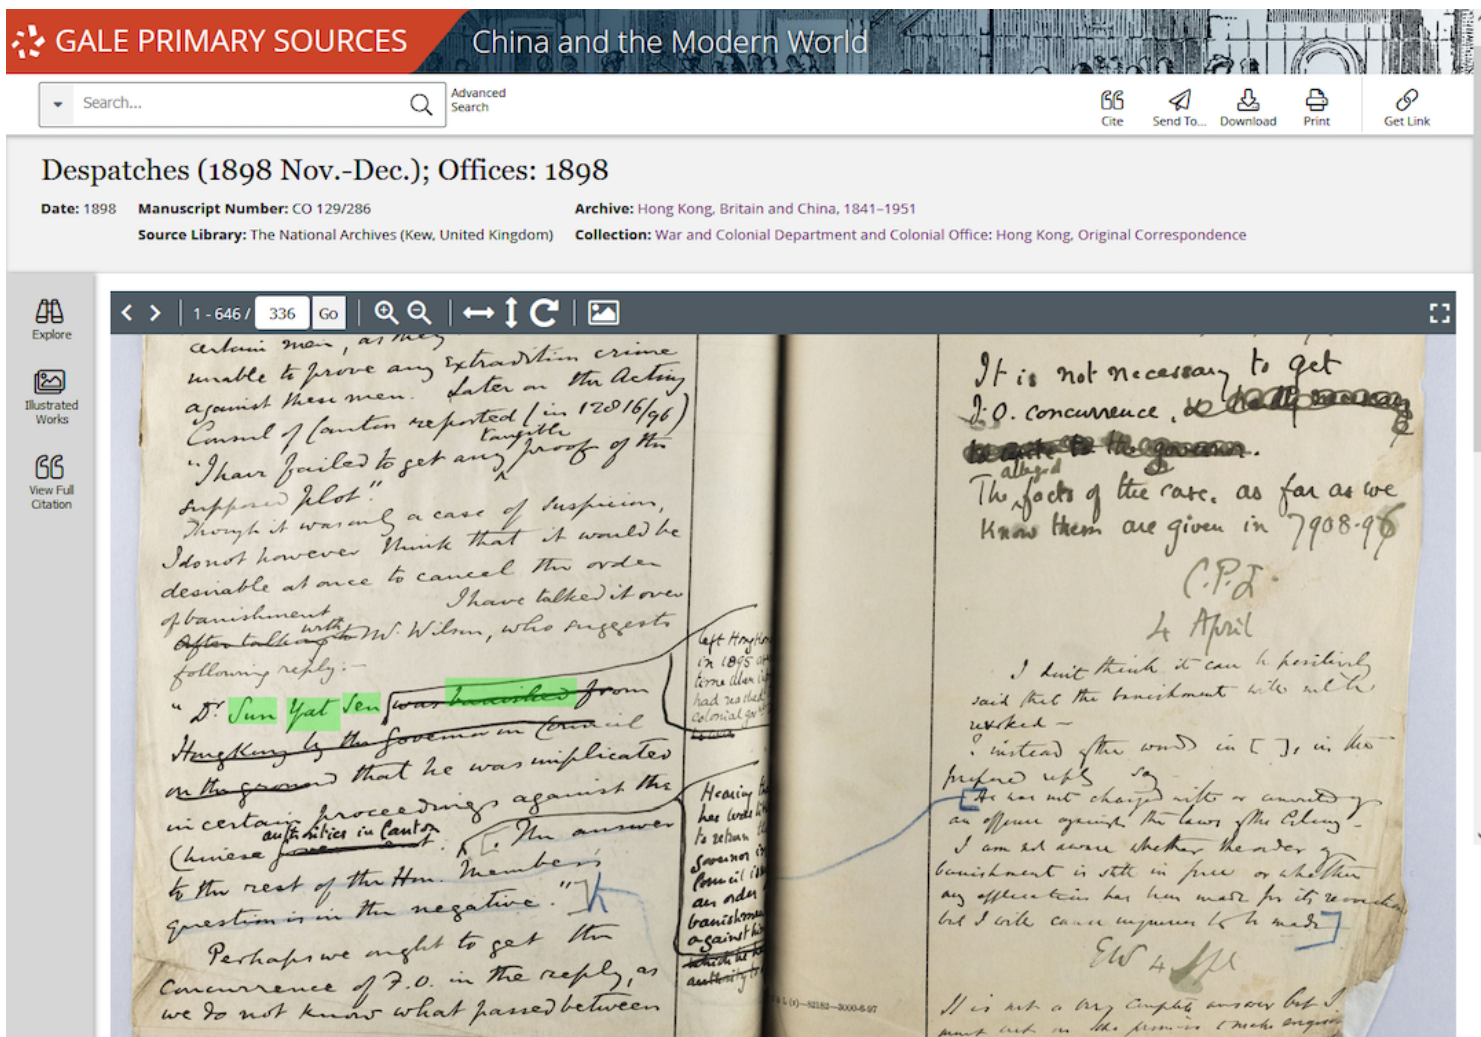 GALE PRIMARY SOURCES
China and the Modern World
Search...
Advanced
Search
Cite
Send To...
Download
Print
Get Link
Despatches (1898 Nov.-Dec.); Offices: 1898
Date: 1898 Manuscript Number: CO 129/286 Archive: Hong Kong, Britain and China, 1841–1951
Source Library: The National Archives (Kew, United Kingdom) Collection: War and Colonial Department and Colonial Office: Hong Kong, Original Correspondence
Explore
Illustrated
Works
View Full
Citation
1 - 646 / 336 Go
certain men, as they
unable to prove any extradition crime
against these men. Later on the Acting
Consul of Canton reported (in 12816/96)
"I have failed to get any tangible proof of the
supposed plot".
Though it was only a case of suspicion,
I do not however think that it would be
desirable at once to cancel the order
of banishment I have talked it over
After talking with Mr. Wilson, who suggests
following reply:-
"Dr Sun Yat Sen [was banished from
Hong Kong by the Governor in Council
on the ground that he was implicated
in certain proceedings against the
Chinese authorities in Canton. [The answer
to the rest of the Hon. Member's
question is in the negative."]
Perhaps we ought to get the
concurrence of F.O. in the reply, as
we do not know what passed between
left Hong Kong
in 1895
time
had reached
colonial
Hearing
has
to return
Governor in
Council
an order
banishment
against him
which he
authority
It is not necessary to get
F.O. concurrence,
The alleged facts of the case, as far as we
know them are given in 7908-96
4 April
I don't think it can be positively
said that the banishment will not be
revoked –
? instead of the words in [ ], in the
proposed reply say
[He was not charged with or convicted of
an offence against the laws of the Colony.
I am not aware whether the order of
banishment is still in force or whether
any application has been made for its revocation
but I will cause inquiries to be made]
EW 4
It is not a very complete answer but I
82182—3000-6-97